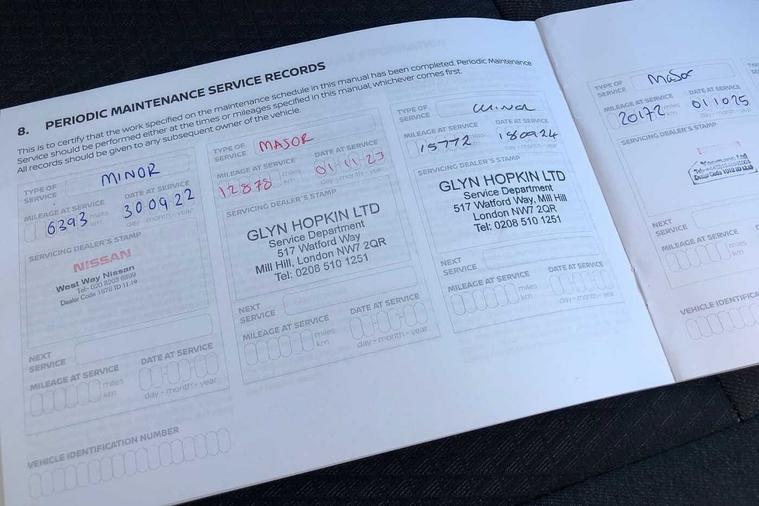 8. PERIODIC MAINTENANCE SERVICE RECORDS
This is to certify that the work specified on the maintenance schedule in this manual has been completed. Periodic Maintenance
Service should be performed either at the times or mileages specified in this manual, whichever comes first.
All records should be given to any subsequent owner of the vehicle.
TYPE OF SERVICE MINOR
MILEAGE AT SERVICE DATE AT SERVICE
6393 miles km 30 09 22
day - month - year
SERVICING DEALER'S STAMP
NISSAN
West Way Nissan
NEXT SERVICE
MILEAGE AT SERVICE DATE AT SERVICE
miles km
day - month - year
VEHICLE IDENTIFICATION NUMBER
TYPE OF SERVICE MAJOR
MILEAGE AT SERVICE DATE AT SERVICE
12878 km 01 11 23
day - month - year
SERVICING DEALER'S STAMP
GLYN HOPKIN LTD
Service Department
517 Watford Way
Mill Hill, London NW7 2QR
Tel: 0208 510 1251
NEXT SERVICE
MILEAGE AT SERVICE DATE AT SERVICE
miles km
day - month - year
TYPE OF SERVICE MINOR
MILEAGE AT SERVICE DATE AT SERVICE
15772 km 18 09 24
day - month - year
SERVICING DEALER'S STAMP
GLYN HOPKIN LTD
Service Department
517 Watford Way, Mill Hill
London NW7 2QR
Tel: 0208 510 1251
NEXT SERVICE
MILEAGE AT SERVICE DATE AT SERVICE
miles km
day - month - year
TYPE OF SERVICE Major
MILEAGE AT SERVICE DATE AT SERVICE
20172 miles km 01 10 25
day - month - year
SERVICING DEALER'S STAMP
NEXT SERVICE
MILEAGE AT SERVICE
miles km
VEHICLE IDENTIFICA